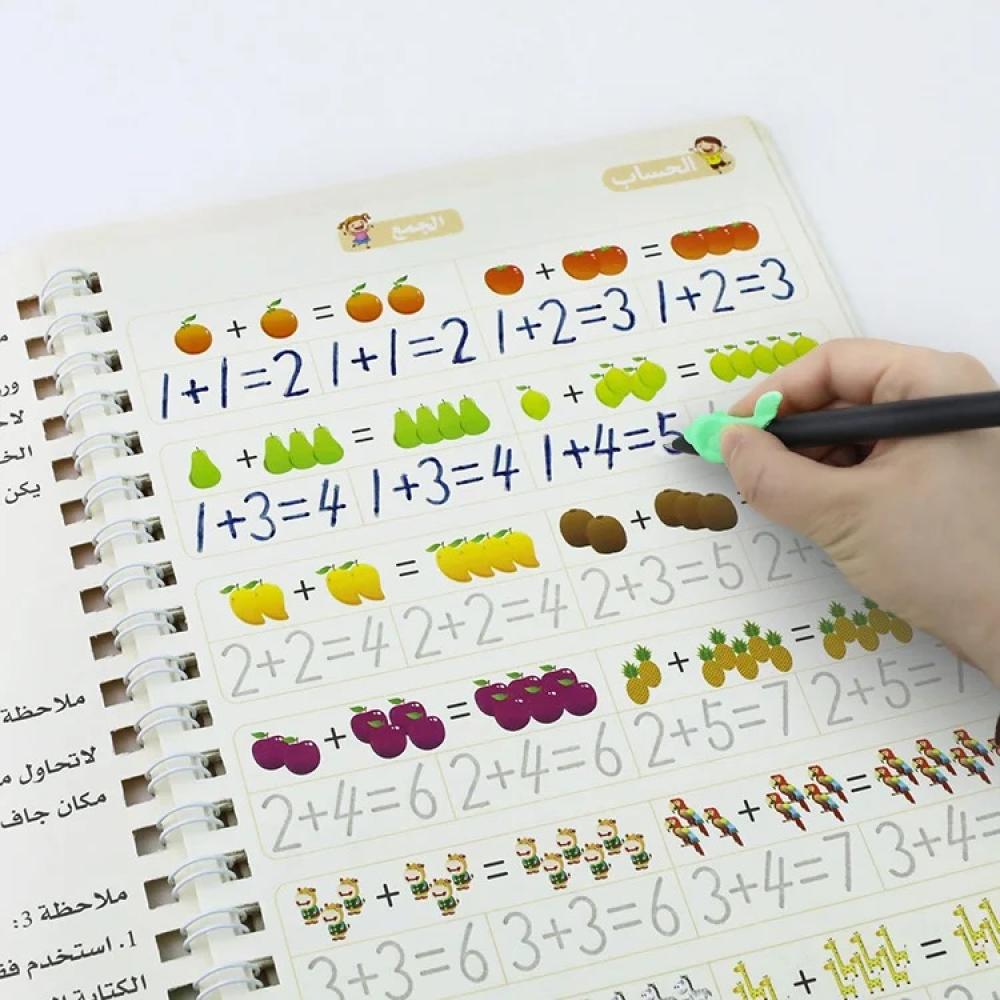 الحساب
الجمع
+ = + =
1+1=2 1+1=2 1+2=3 1+2=3
+ = + =
1+3=4 1+3=4 1+4=5
+ = +
2+2=4 2+2=4 2+3=5 2+
+ = + =
2+4=6 2+4=6 2+5=7 2+5=7
+ = + =
3+3=6 3+3=6 3+4=7 3+4=
+ =
لا
يكن
ملاحظة
لاتحاول
مكان جاف
ملاحظة 3:
1. استخدم
الكتابة